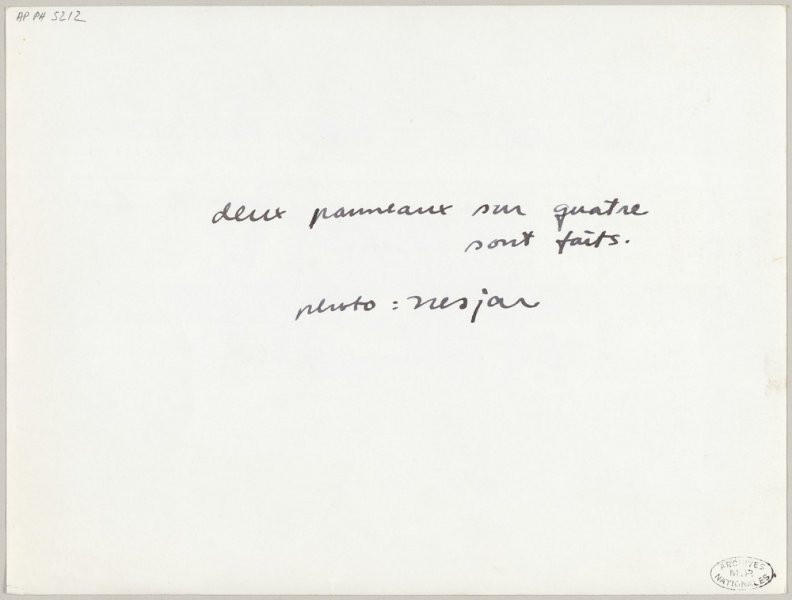 AP PH 5212
deux panneaux sur quatre
sont faits.
photo : nesjar
ARCHIVES
M.P.
NATIONALES